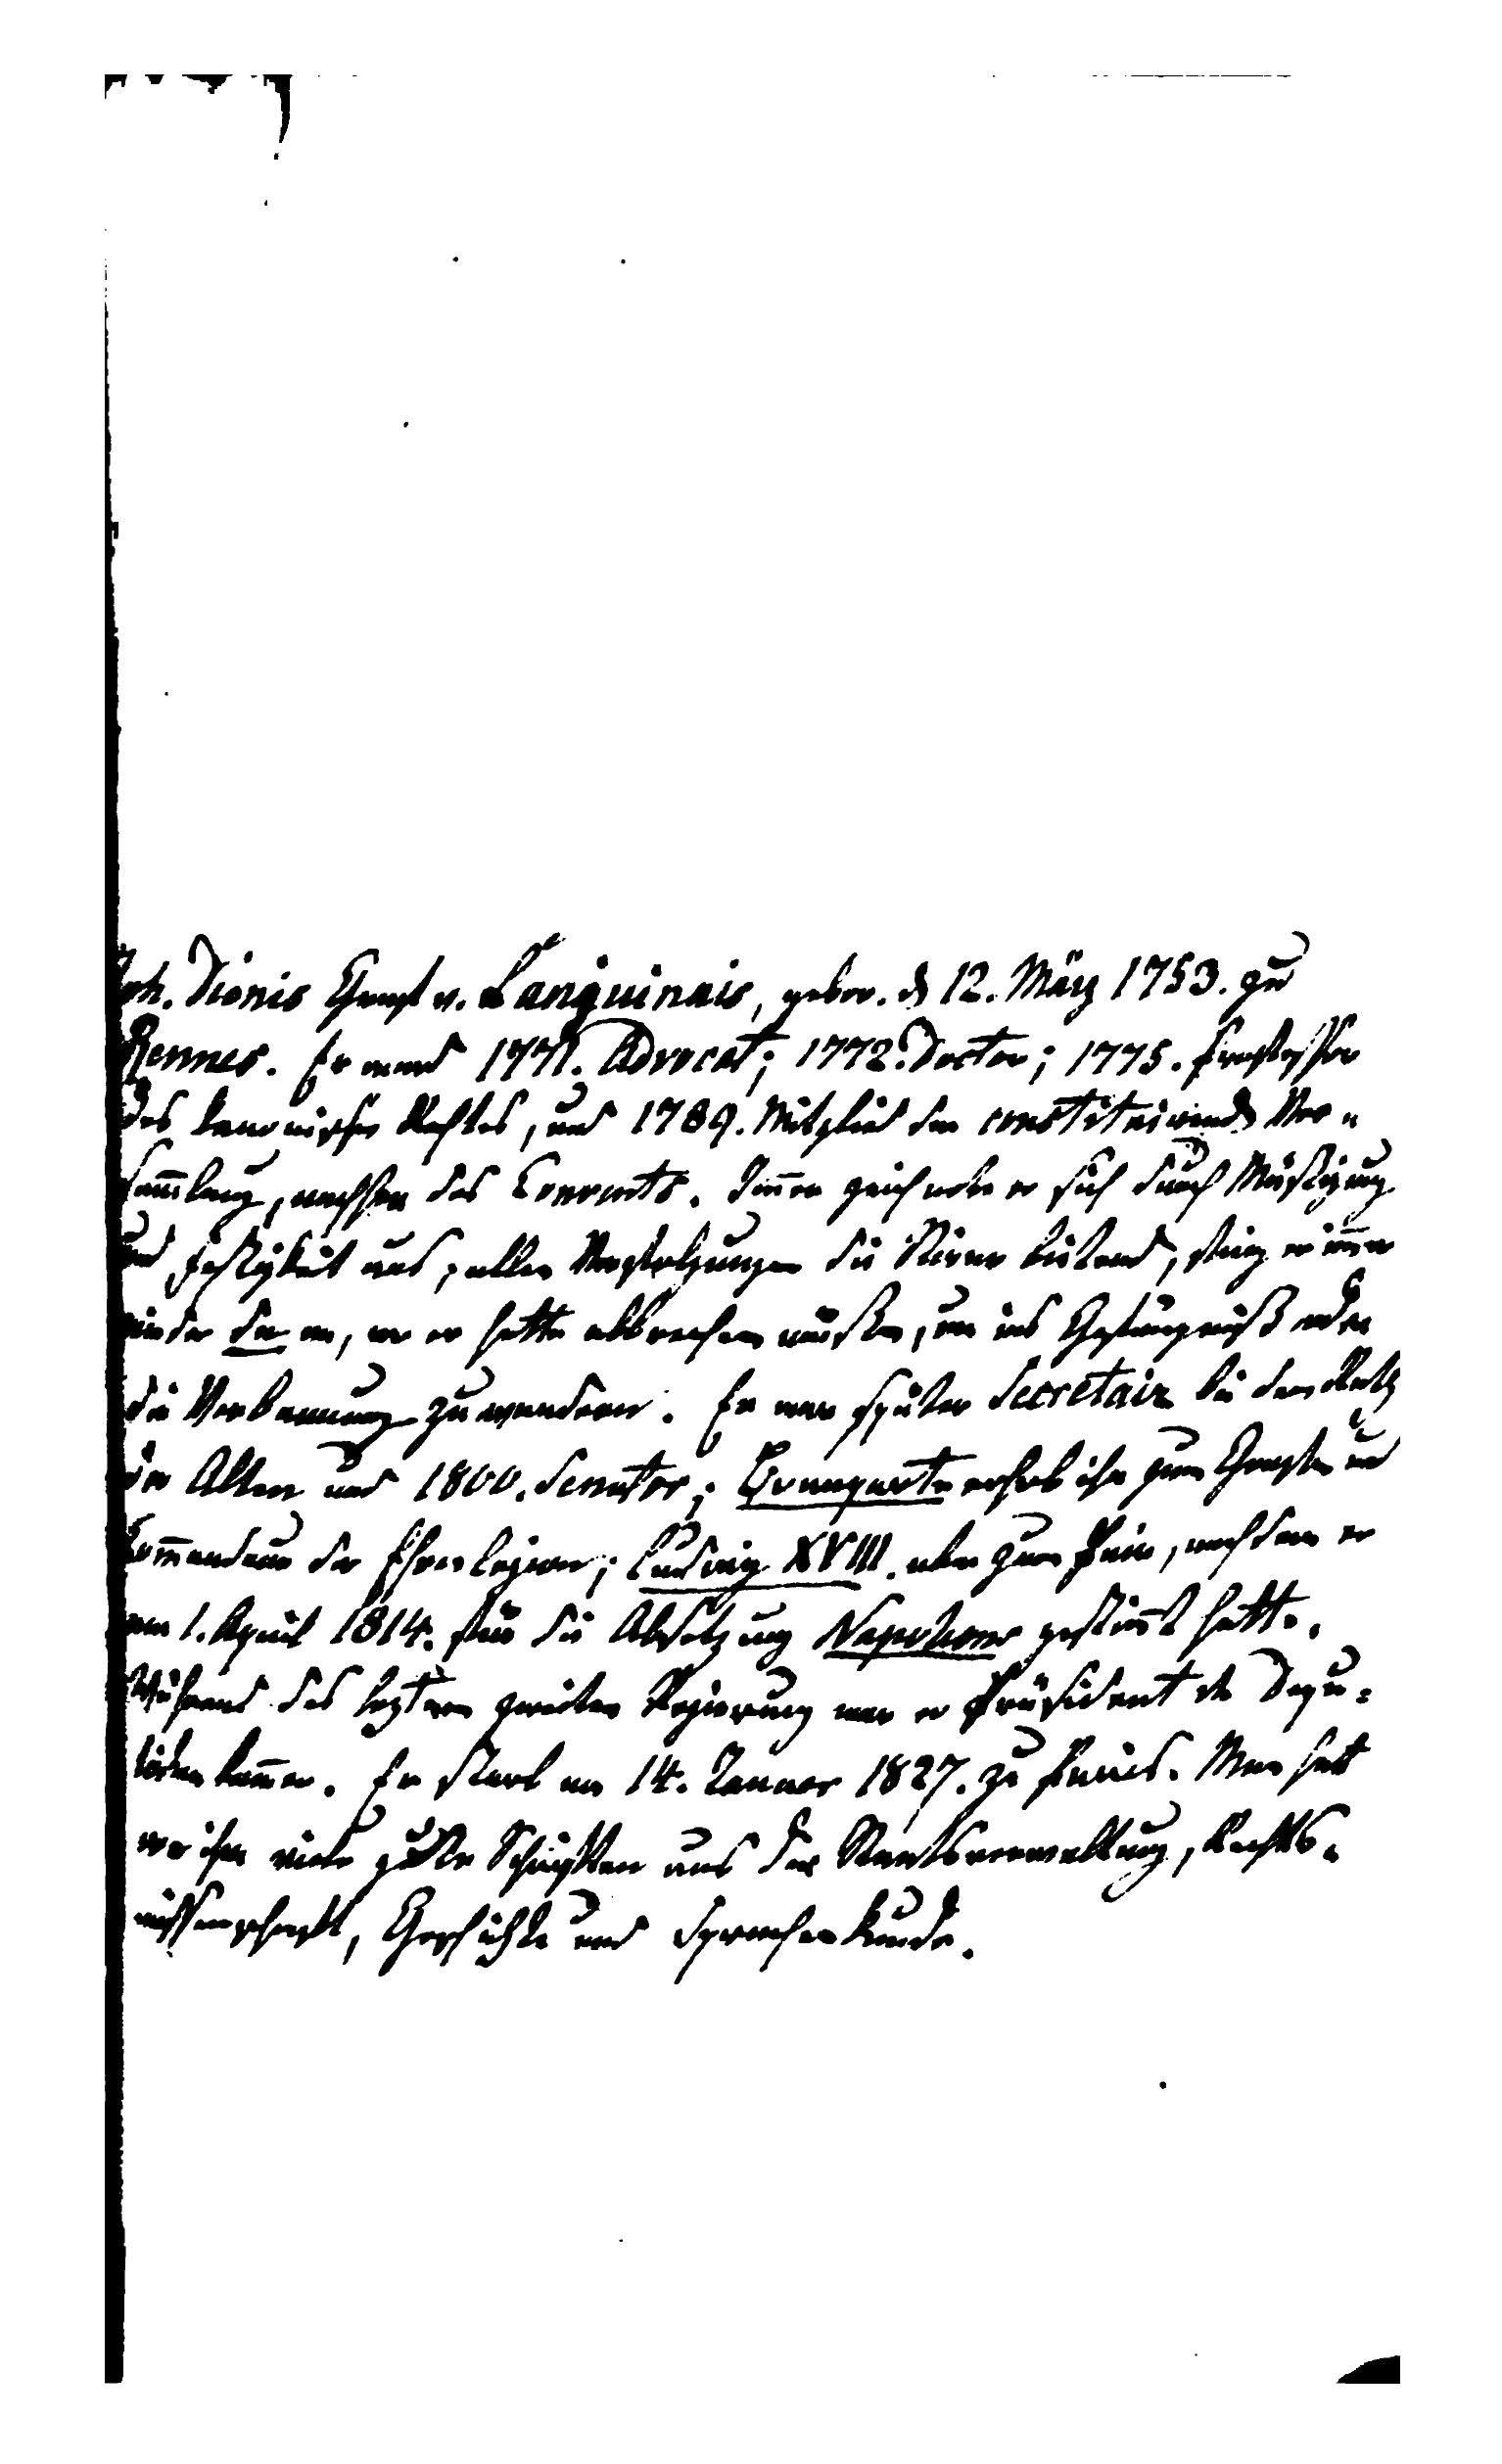 Joh. Dionis Graf v. Languinais, gebor. d 12. März 1753. zu
Rennes. Er ward 1771. Advocat; 1772. Doctor; 1775. Professor
des kanonischen Rechtes, und 1789. Mitglied der constituirends Ver-
sam̄lung, nachher des Convents. Im̄er zeichnete er sich durch Mäßigung
und Festigkeit aus; allen Verfolgungen die Stirne bietend, stieg er im̄er
wieder da an, wo er hatte abbrechen müßen, um ins Gefängniß oder
die Verbannung zu wandern. Er war später Secretair bei dem Rath
der Alten und 1800. Senator; Buonaparte erhob ihn zum Grafen und
Com̄andeur der Ehrenlegion; Ludwig XVIII. aber zum Pair, nachdem er
am 1. April 1814. für die Absetzung Napoleons gestim̄t hatte.
Während des leztern zweiten Regierung war er Präsident der Depu-
tirten kam̄er. Er starb am 14. Januar 1827. zu Paris. Man hat
von ihm viele gute Schriften aus der Staatsverwaltung, Rechts-
wissenschaft, Geschichte und Sprachenkunde.